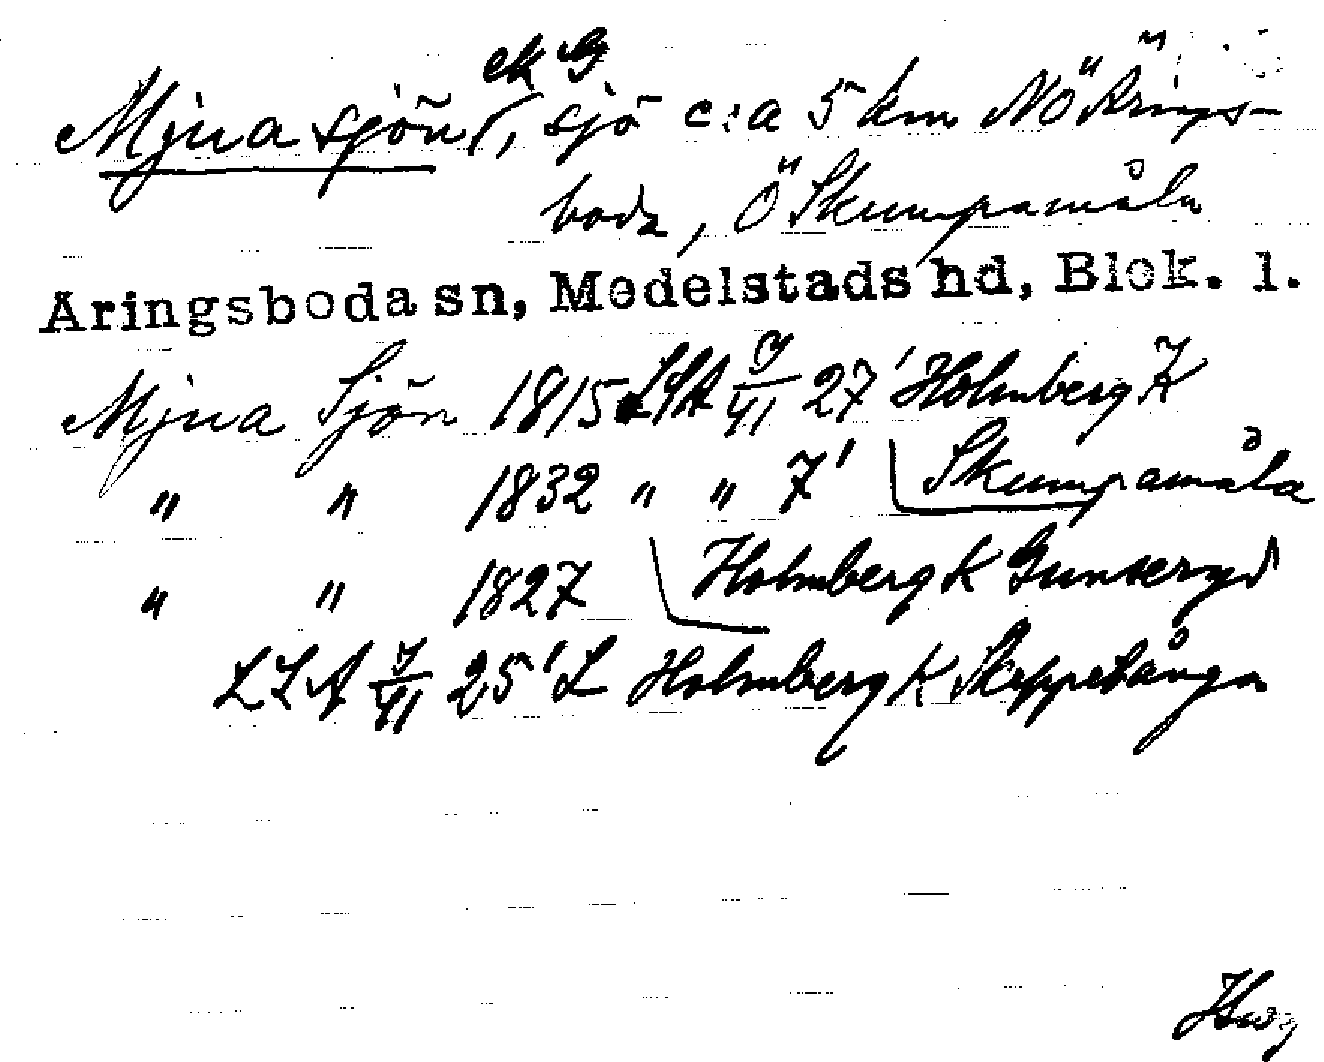 ek G
Mjuasjön (, sjö c:a 5 km NÖ Årings-
boda, Ö Skumpamåla
Aringsboda sn, Medelstads hd, Blek. l.
Mjua Sjön 1815 LSA 7/VI 27' Holmberg K
" " 1832 " " 7' Skumpamåla
" " 1827 Holmberg K Gunseryd
LSA 7/VI 25' L Holmberg K Skeppelånga